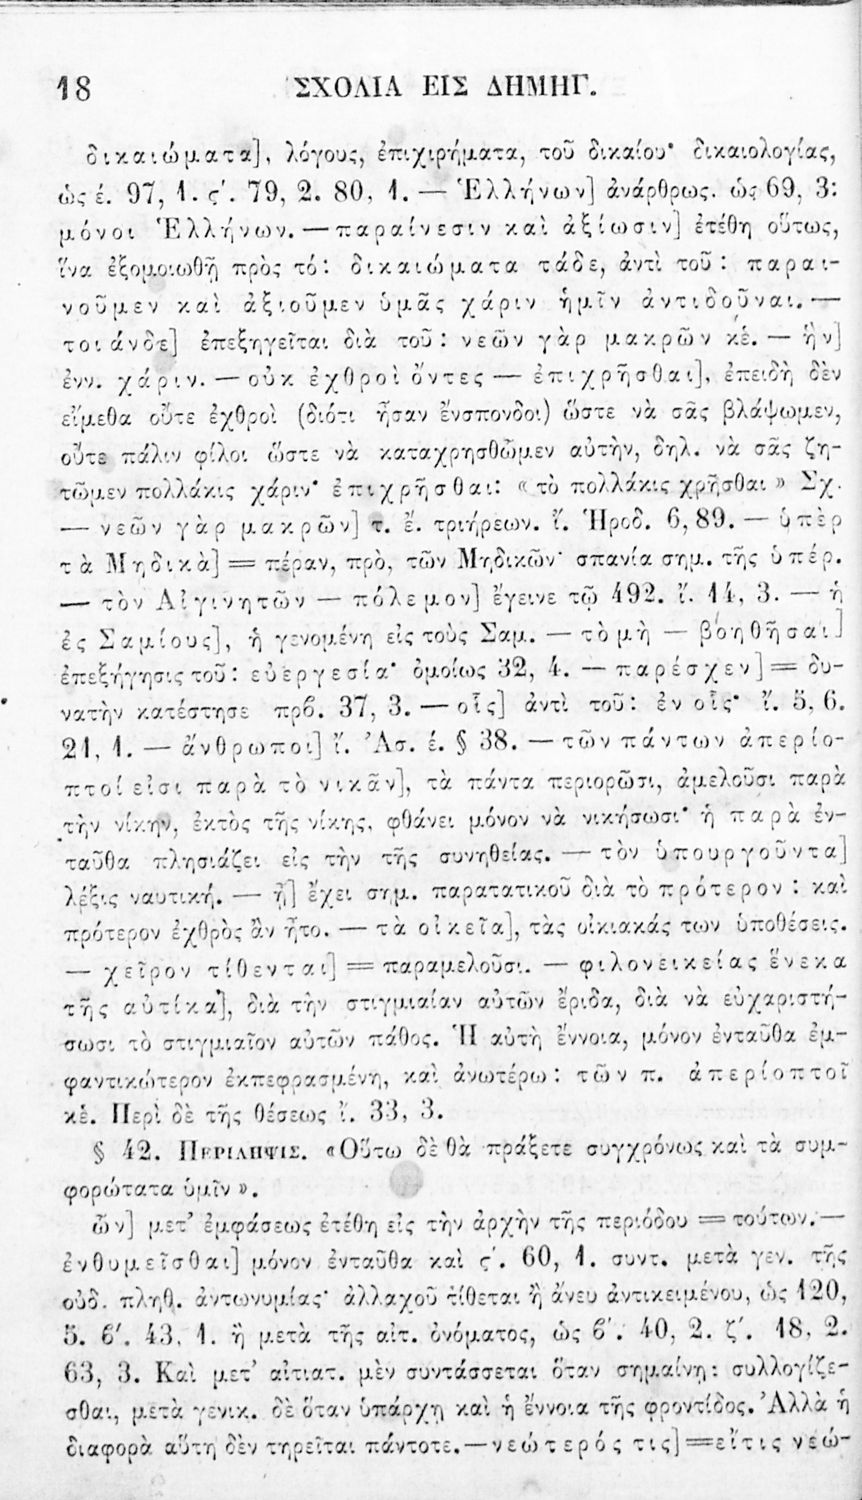 18 ΣΧΟΛΙΑ ΕΙΣ ΔΗΜΗΓ.
δικαιώματα], λόγους, ἐπιχειρήματα, τοῦ δικαίου· δικαιολογίας,
ὡς έ. 97, 1. ϛ΄. 79, 2. 80, 1. — Ἑλλήνων] ἀνάρθρως. ὡς 69, 3:
μόνοι Ἑλλήνων. — παραίνεσιν καὶ ἀξίωσιν] ἐτέθη οὕτως,
ἵνα ἐξομοιωθῇ πρὸς τό: δικαιώματα τάδε, ἀντὶ τοῦ: παραι-
νοῦμεν καὶ ἀξιοῦμεν ὑμᾶς χάριν ἡμῖν ἀντιδοῦναι. —
τοιάνδε] ἐπεξηγεῖται διὰ τοῦ: νεῶν γὰρ μακρῶν κἑ. — ἣν]
ἐνν. χάριν. — οὐκ ἐχθροὶ ὄντες — ἐπιχρῆσθαι], ἐπειδὴ δὲν
εἴμεθα οὔτε ἐχθροὶ (διότι ἦσαν ἔνσπονδοι) ὥστε νὰ σᾶς βλάψωμεν,
οὔτε πάλιν φίλοι ὥστε νὰ καταχρησθῶμεν αὐτὴν, δηλ. νὰ σᾶς ζη-
τῶμεν πολλάκις χάριν· ἐπιχρῆσθαι: «τὸ πολλάκις χρῆσθαι» Σχ.
— νεῶν γὰρ μακρῶν] τ. ἔ. τριήρεων. ἴ. Ἡροδ. 6, 89. — ὑπὲρ
τὰ Μηδικὰ] = πέραν, πρὸ, τῶν Μηδικῶν· σπανία σημ. τῆς ὑπέρ.
— τὸν Αἰγινητῶν — πόλεμον] ἔγεινε τῷ 492. ἴ. 14, 3. — ἡ
ἐς Σαμίους], ἡ γενομένη εἰς τοὺς Σαμ. — τὸ μὴ — βοηθῆσαι]
ἐπεξήγησις τοῦ: εὐεργεσία· ὁμοίως 32, 4. — παρέσχεν] = δυ-
νατὴν κατέστησε πρβ. 37, 3. — οἷς] ἀντὶ τοῦ: ἐν οἷς· ἴ. 5, 6.
21, 1. — ἄνθρωποι] ἴ. Ἀσ. έ. § 38. — τῶν πάντων ἀπερίο-
πτοί εἰσι παρὰ τὸ νικᾶν], τὰ πάντα περιορῶσι, ἀμελοῦσι παρὰ
τὴν νίκην, ἐκτὸς τῆς νίκης, φθάνει μόνον νὰ νικήσωσι· ἡ παρὰ ἐν-
ταῦθα πλησιάζει εἰς τὴν τῆς συνηθείας. — τὸν ὑπουργοῦντα]
λέξις ναυτική. — ᾖ] ἔχει σημ. παρατατικοῦ διὰ τὸ πρότερον: καὶ
πρότερον ἐχθρὸς ἂν ἦτο. — τὰ οἰκεῖα], τὰς οἰκιακάς των ὑποθέσεις.
— χεῖρον τίθενται] = παραμελοῦσι. — φιλονεικείας ἕνεκα
τῆς αὐτίκα], διὰ τὴν στιγμιαίαν αὐτῶν ἔριδα, διὰ νὰ εὐχαριστή-
σωσι τὸ στιγμιαῖον αὐτῶν πάθος. Ἡ αὐτὴ ἔννοια, μόνον ἐνταῦθα ἐμ-
φαντικώτερον ἐκπεφρασμένη, καὶ ἀνωτέρω: τῶν π. ἀπερίοπτοῖ
κἑ. Περὶ δὲ τῆς θέσεως ἴ. 33, 3.
§ 42. ΠΕΡΙΛΗΨΙΣ. «Οὕτω δὲ θὰ πράξετε συγχρόνως καὶ τὰ συμ-
φορώτατα ὑμῖν».
ὧν] μετ' ἐμφάσεως ἐτέθη εἰς τὴν ἀρχὴν τῆς περιόδου = τούτων. —
ἐνθυμεῖσθαι] μόνον ἐνταῦθα καὶ ϛ΄. 60, 1. συντ. μετὰ γεν. τῆς
οὐδ. πληθ. ἀντωνυμίας· ἀλλαχοῦ τίθεται ἢ ἄνευ ἀντικειμένου, ὡς 120,
5. β΄. 43, 1. ἢ μετὰ τῆς αἰτ. ὀνόματος, ὡς β΄. 40, 2. ζ΄. 18, 2.
63, 3. Καὶ μετ' αἰτιατ. μὲν συντάσσεται ὅταν σημαίνῃ: συλλογίζε-
σθαι, μετὰ γενικ. δὲ ὅταν ὑπάρχῃ καὶ ἡ ἔννοια τῆς φροντίδος. Ἀλλὰ ἡ
διαφορὰ αὕτη δὲν τηρεῖται πάντοτε. — νεώτερός τις] = εἴ τις νεώ-